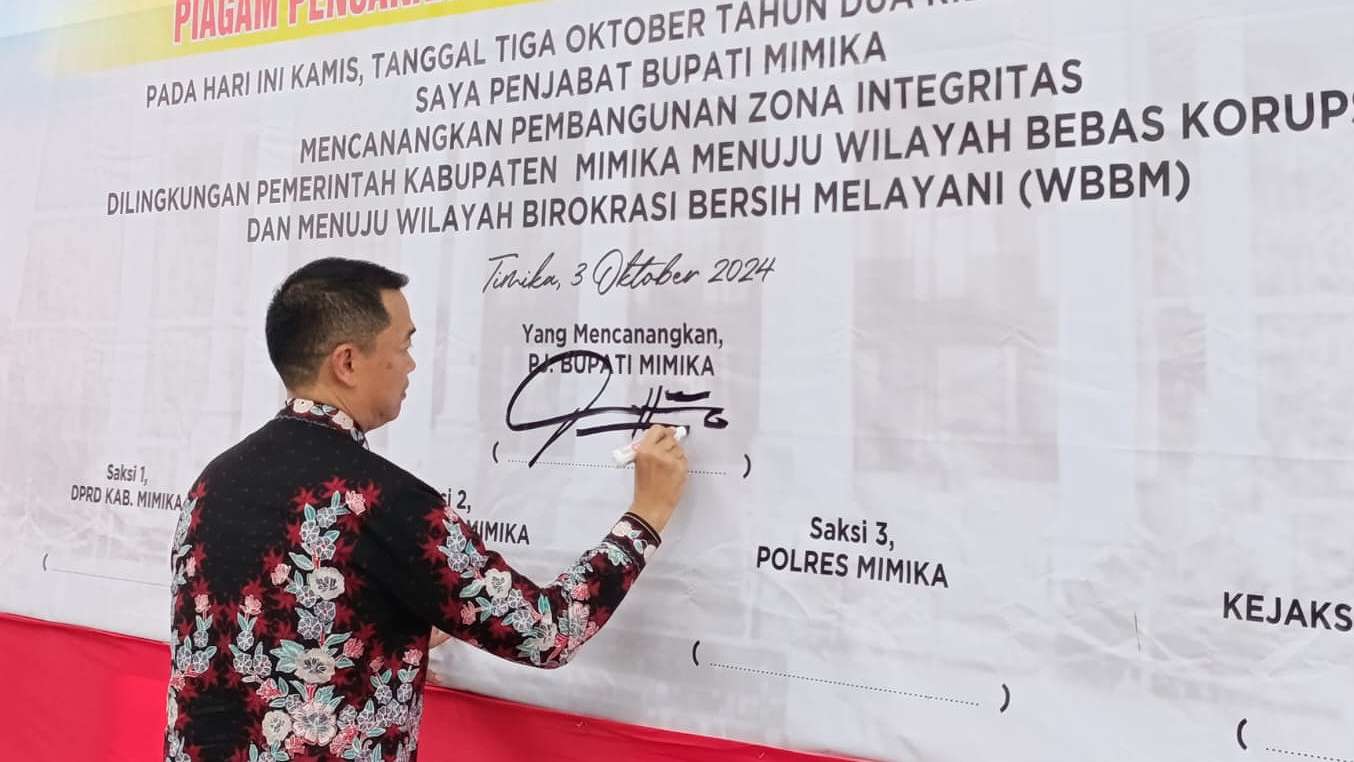 PIAGAM
PADA HARI INI KAMIS, TANGGAL TIGA OKTOBER TAHUN DUA
SAYA PENJABAT BUPATI MIMIKA
MENCANANGKAN PEMBANGUNAN ZONA INTEGRITAS
DILINGKUNGAN PEMERINTAH KABUPATEN MIMIKA MENUJU WILAYAH BEBAS KORUPS
DAN MENUJU WILAYAH BIROKRASI BERSIH MELAYANI (WBBM)
Timika, 3 Oktober 2024
Yang Mencanangkan,
PJ. BUPATI MIMIKA
(....................)
Saksi 1,
DPRD KAB. MIMIKA
si 2,
MIMIKA
Saksi 3,
POLRES MIMIKA
KEJAKS
(....................)